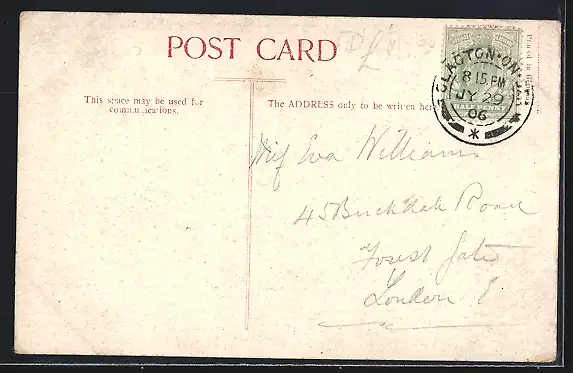 POST CARD
This space may be used for
communications.
The ADDRESS only to be written here
CLACTON-ON-SEA
8 15 PM
JY 29
06
HALF PENNY
Printed in
Miss Eva Williams
45 Road
Forest Gate
London E